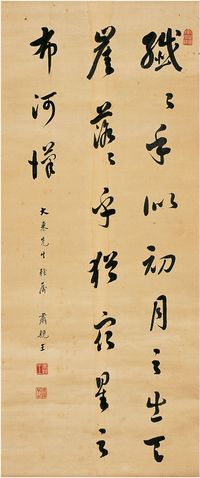 纖〻乎似初月之出天
崖落〻乎猶眾星之
布河漢
大東先生雅屬 肅親王